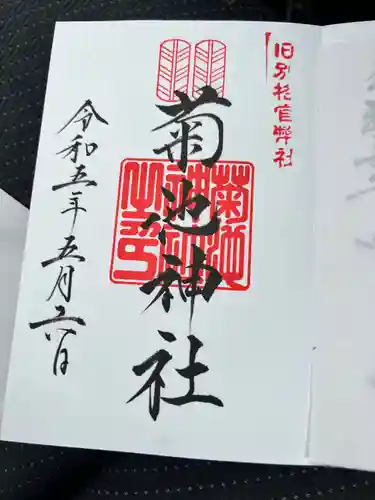 旧別格官幣社
菊池神社
菊池神社之印
令和五年五月六日